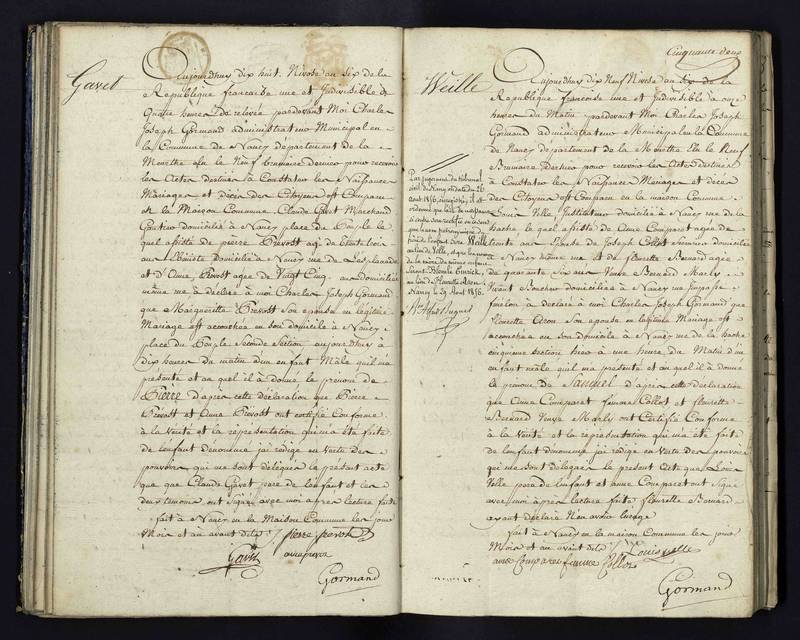 Gavet
Aujourdhuy dix huit Nivose an six de la
République francaise une et Indivisible à
Quatre heures de relevée pardevant Moi Charles
Joseph Gormand administrateur Municipal en
la Commune de Nancy département de la
Meurthe élu le Neuf brumaire dernier pour recevoir
les Actes destinés à Constater les Naissances
Mariages et décès des Citoyens est Comparu
en la Maison Commune Claude Gavet Marchand
domicilié à Nancy place du Peuple le
quel assisté de pierre Prevost agé de trente trois
ans domicilié à Nancy rue de
et d'Anne Prevost agée de Vingt Cinq ans domiciliée
même rue à déclaré à moi Charles Joseph Gormand
que Margueritte Prevost son épouse en légitime
Mariage est accouchée en son domicile à Nancy
place du Peuple Seconde Section aujourdhuy à
dix heures du matin d'un enfant Mâle qu'il m'a
présenté et au quel il à donné le prénom de
Pierre d'après cette déclaration que Pierre
Prevost et Anne Prevost ont certifié Conforme
à la Vérité et la représentation qui m'a été faite
de lenfant dénommé jai rédigé en vertu des
pouvoirs qui me sont délégués le présent acte
que Claude Gavet pere de lenfant et les
deux temoins ont signé avec moi après lecture faite
fait à Nancy en la Maison Commune les jour
Mois et an avant dits pierre prevost
Gavet anne prevo
Gormand
Cinquante deux
Weille
Aujourdhuy dix Neuf Nivose an six de la
République francoise une et Indivisible à onze
heures du Matin pardevant Moi Charles Joseph
Gormand administrateur Municipal en la Commune
de Nancy département de la Meurthe Elu le Neuf
Brumaire dernier pour recevoir les Actes destinés
à Constater les Naissances Mariages et décès
des Citoyens est Comparu en la maison Commune
Louis Ville, Instituteur domicilié à Nancy rue de la
hache le quel assisté de Anne Comparet agée de
trente ans Epouse de Joseph Collot domiciliée
à Nancy même rue & de fleurette Bernard agée
de quarante six ans Veuve Bernard Marly
Vivant Boucher domiciliée à Nancy rue
à déclaré à moi Charles Joseph Gormand que
fleurette Son épouse en légitime Mariage est
accouchée en son domicile à Nancy rue de la hache
cinquieme section hier à une heure du Matin d'un
enfant mâle quil ma présenté et au quel il à donné
le prénom de Samuel d'après cette déclaration
que Anne Comparet femme Collot et fleurette
Bernard Veuve Marly ont Certifié Conforme
à la Vérité et la représentation qui m'a été faite
de lenfant dénommé jai rédigé en vertu des pouvoirs
qui me sont délégués le présent acte que Louis
Ville pere de lenfant et anne Comparet ont signé
avec moi après lecture faite fleurette Bernard
ayant déclaré N'en avoir lusage
fait à Nancy en la maison Commune les jour
Mois et an avant dits Louis ville
anne Comparet femme Collot
Gormand
Par jugement du tribunal
civil de Nancy en date du 26
août 1816, enregistré, il est
ordonné que l'acte de naissance
ci contre sera rectifié en ce sens
que le nom patronymique du
père de l'enfant sera Weille
au lieu de Ville, et que les noms
de la mère du même enfant